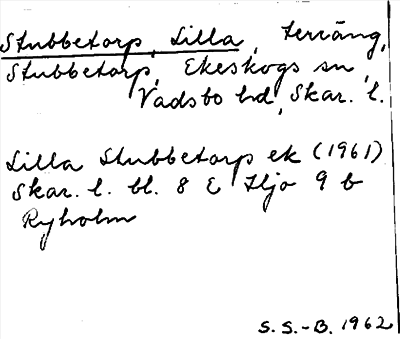 Stubbetorp, Lilla, terräng,
Stubbetorp, Ekeskogs sn,
Vadsbo hd, Skar. l.
Lilla Stubbetorp ek (1961)
Skar. l. bl. 8 E Hjo 9 b
Ryholm
S. S.-B. 1962